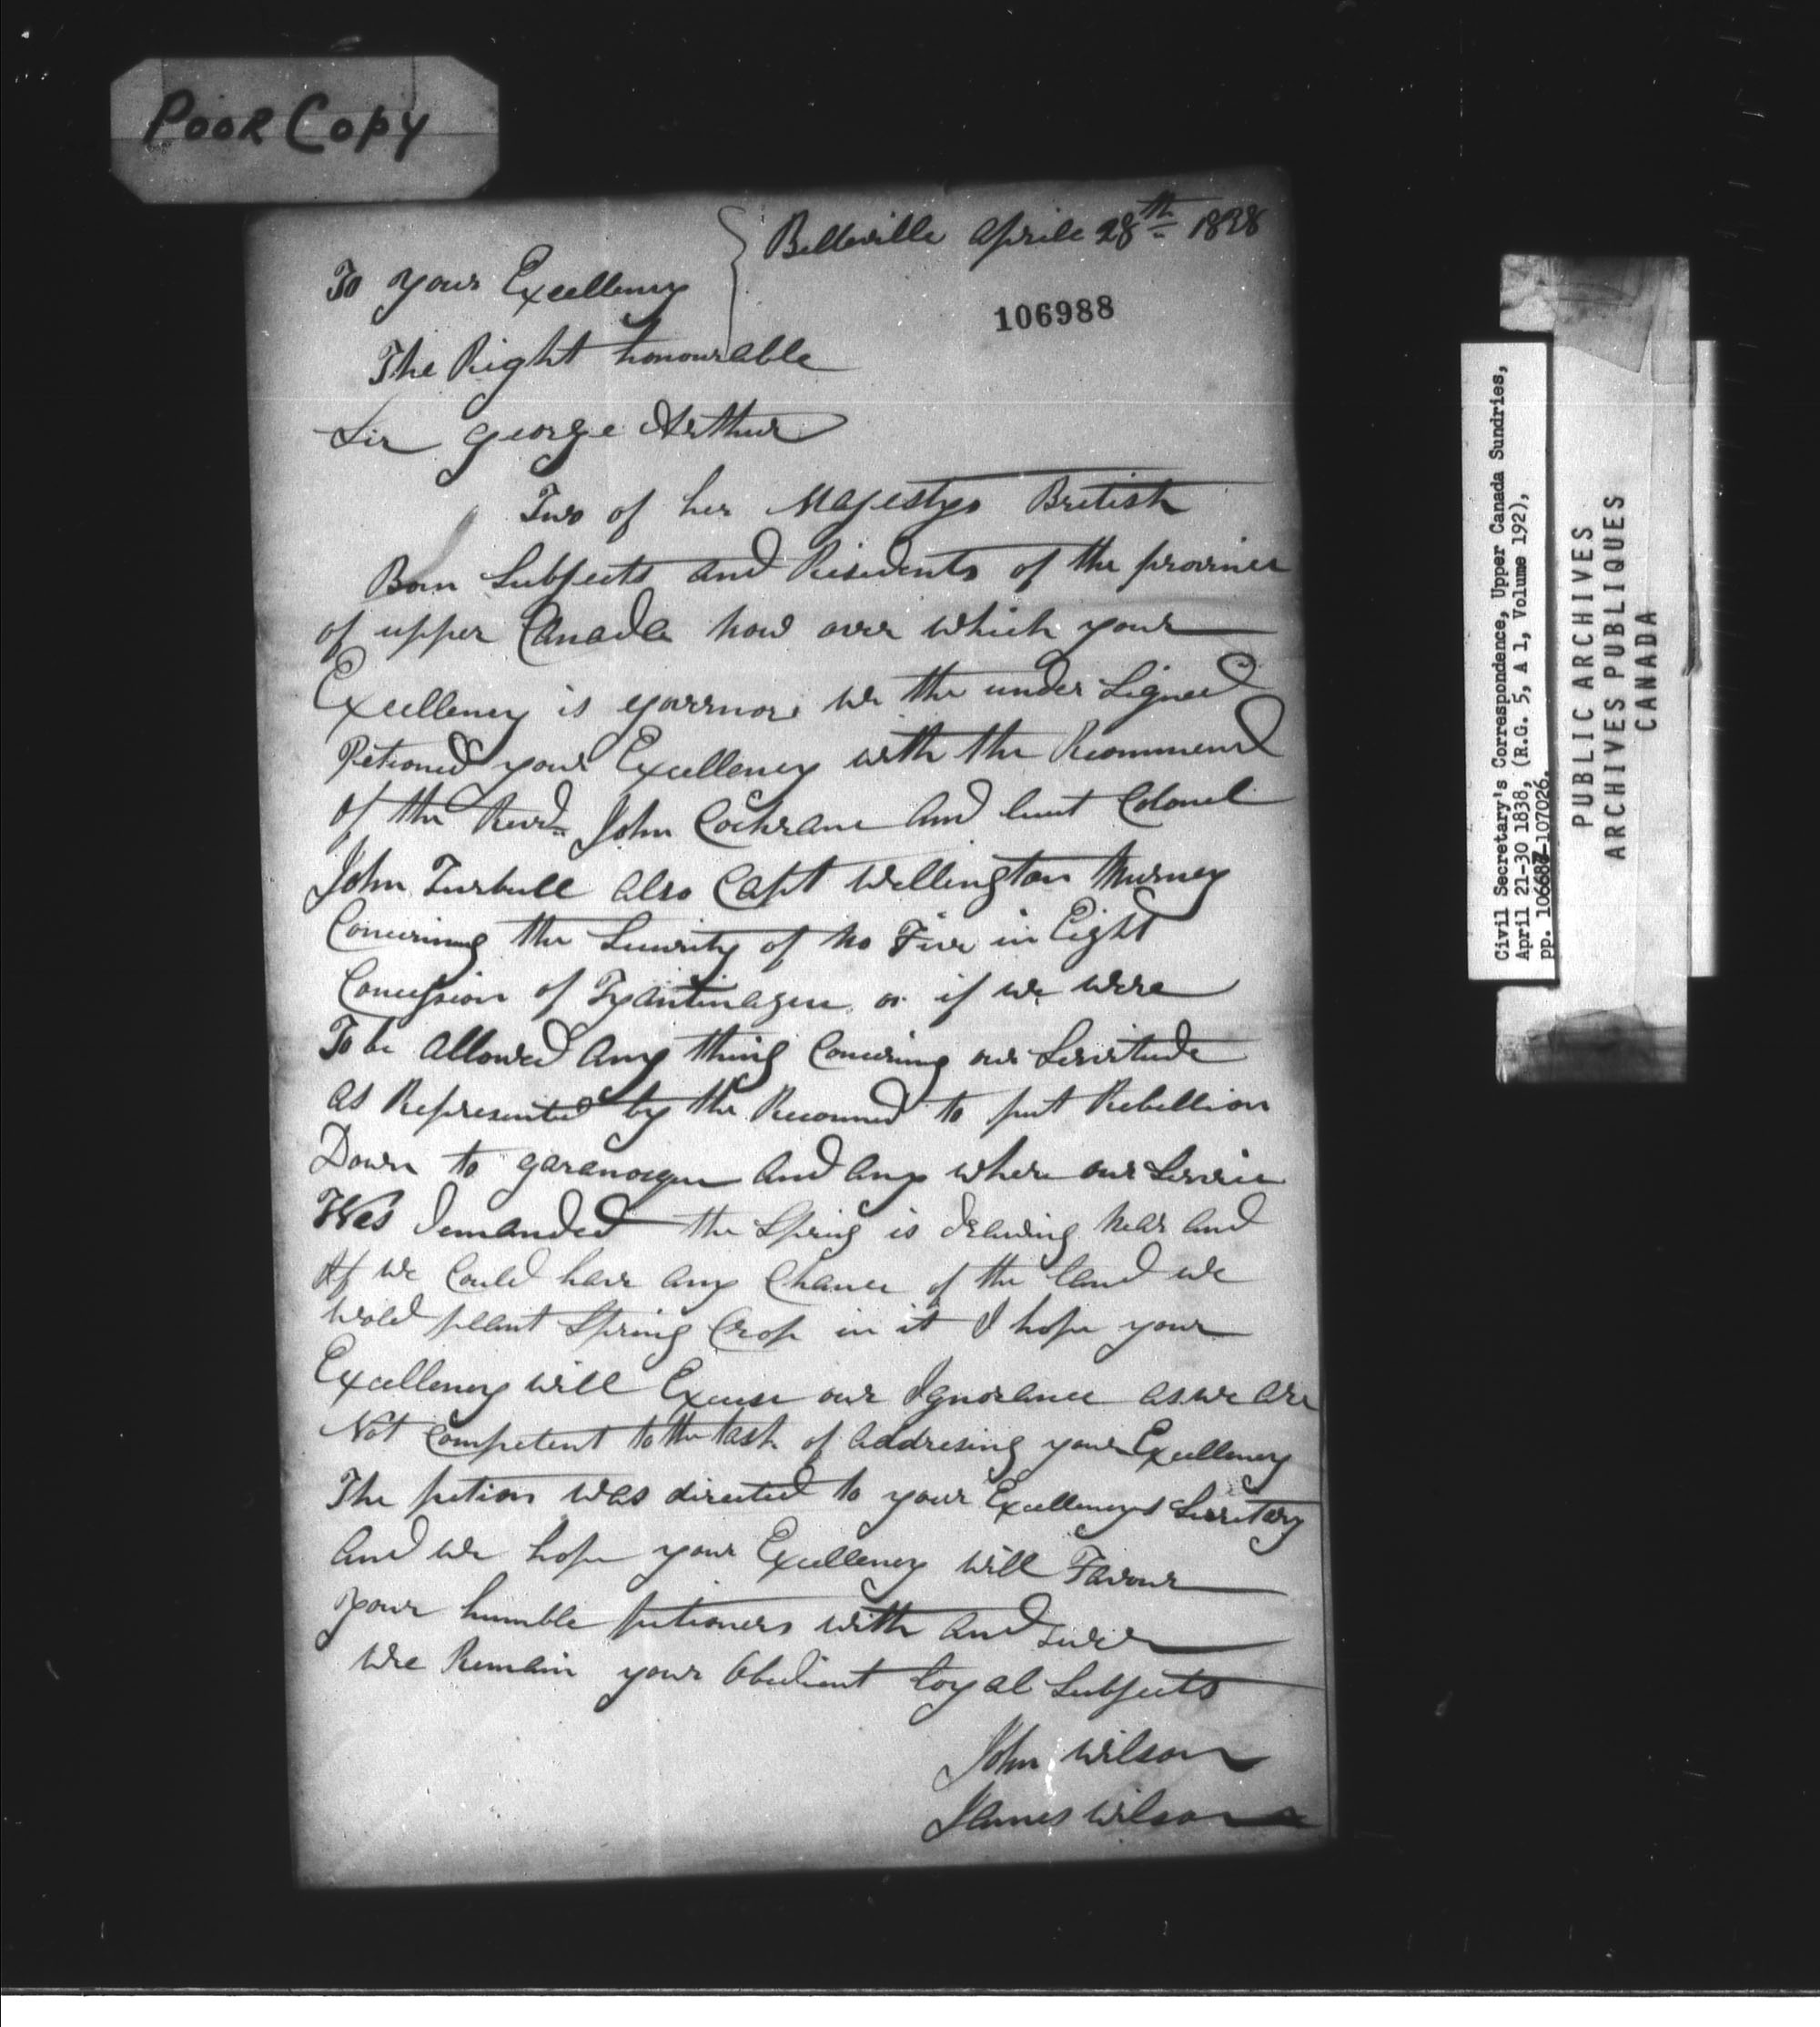 Poor Copy
Belleville aprile 28th 1838
To your Excellency
106988
The Right honourable
Sir george Arthur
Two of her Majestys British
Born Subjects and Residents of the province
of upper Canada now over which your
Excellency is govrnor we the under Signed
Petioned your Excellency with the Recommend
of the Revd John Cochrane and leut Colonel
John Turbull also Capt Wellington Murney
Concirning the Security of No Five in Eight
Concession of Tyantinageu or if we were
To be allowed any thing Concirning our Servitude
as Represented by the Recomned to put Rebellion
Down to garanoque and any where our Service
Was demanded the Spring is drawing near and
If we Could have any Chance of the land we
wold plant Spring Crop in it I hope your
Excellency will Excuse our Ignorance as we are
Not Competent to the task of addresing your Excellency
The petion was directed to your Excellencys Secritary
and we hope your Excellency will Favour
your humble petioners with and
we Remain your Obedient loyal Subjects
John Wilson
James Wilson
Civil Secretary's Correspondence, Upper Canada Sundries,
April 21-30 1838, (R.G. 5, A 1, Volume 192),
pp. 106687-107026.
PUBLIC ARCHIVES
ARCHIVES PUBLIQUES
CANADA